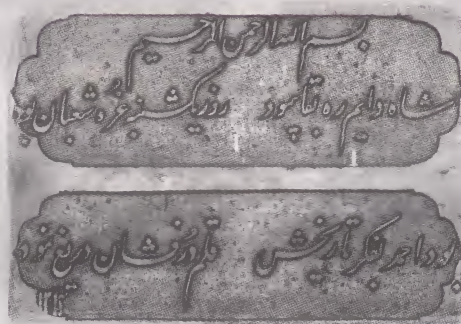 بسم الله الرحمن الرحیم
شاه دایم ره بقا پیمود روز یکشنبه غره شعبان بود
بود بفکر تاریخش قلم درفشان دریغ نمود